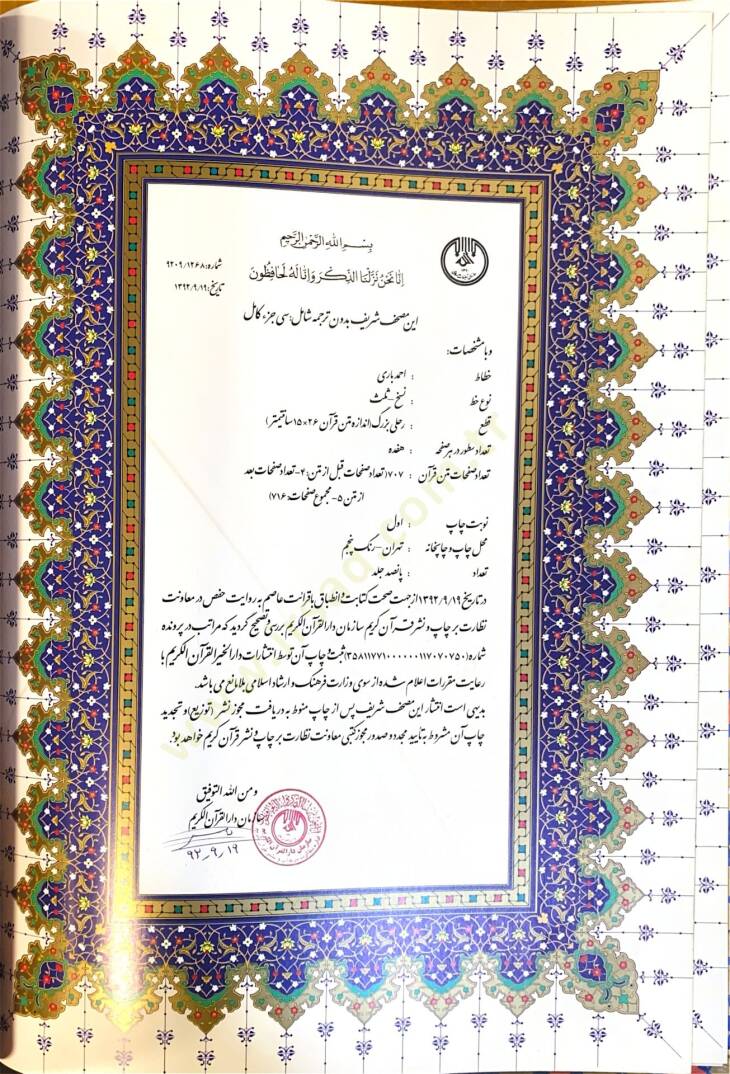 بِسْمِ اللهِ الرَّحْمٰنِ الرَّحِیْمِ
شماره: ۹۲۰۹/۱۲۶۸
اِنّا نَحْنُ نَزَّلْنَا الذِّکْرَ وَ اِنّا لَهُ لَحافِظُونَ
تاریخ: ۱۳۹۲/۹/۱۹
این مصحف شریف بدون ترجمه شامل: سی جزء کامل
و با مشخصات:
خطاط : احمد باری
نوع خط : نسخ - ثلث
قطع : رحلی بزرگ (اندازه متن قرآن ۲۶×۱۵ سانتیمتر)
تعداد سطور در هر صفحه : هفده
تعداد صفحات متن قرآن : ۷۰۷ (تعداد صفحات قبل از متن: ۴ - تعداد صفحات بعد
از متن ۵ - مجموع صفحات: ۷۱۶)
نوبت چاپ : اول
محل چاپ و چاپخانه : تهران - رنگ پنجم
تعداد : پانصد جلد
در تاریخ ۱۳۹۲/۹/۱۹ از جهت صحت کتابت و انطباق با قرائت عاصم به روایت حفص در معاونت
نظارت بر چاپ و نشر قرآن کریم سازمان دارالقرآن الکریم بررسی و تصحیح گردید که مراتب در پرونده
شماره (۳۵۸۱۱۷۷۱۰۰۰۰۰۰۱۱۷۰۷۰۷۵۰) ثبت و چاپ آن توسط انتشارات دارالخیر القرآن الکریم با
رعایت مقررات اعلام شده از سوی وزارت فرهنگ و ارشاد اسلامی بلامانع می باشد.
بدیهی است انتشار این مصحف شریف پس از چاپ منوط به دریافت مجوز نشر (توزیع) و تجدید
چاپ آن مشروط به تأیید مجدد و صدور مجوز کتبی معاونت نظارت بر چاپ و نشر قرآن کریم خواهد بود.
و من الله التوفیق
سازمان دارالقرآن الکریم
۹۲_۹_۱۹